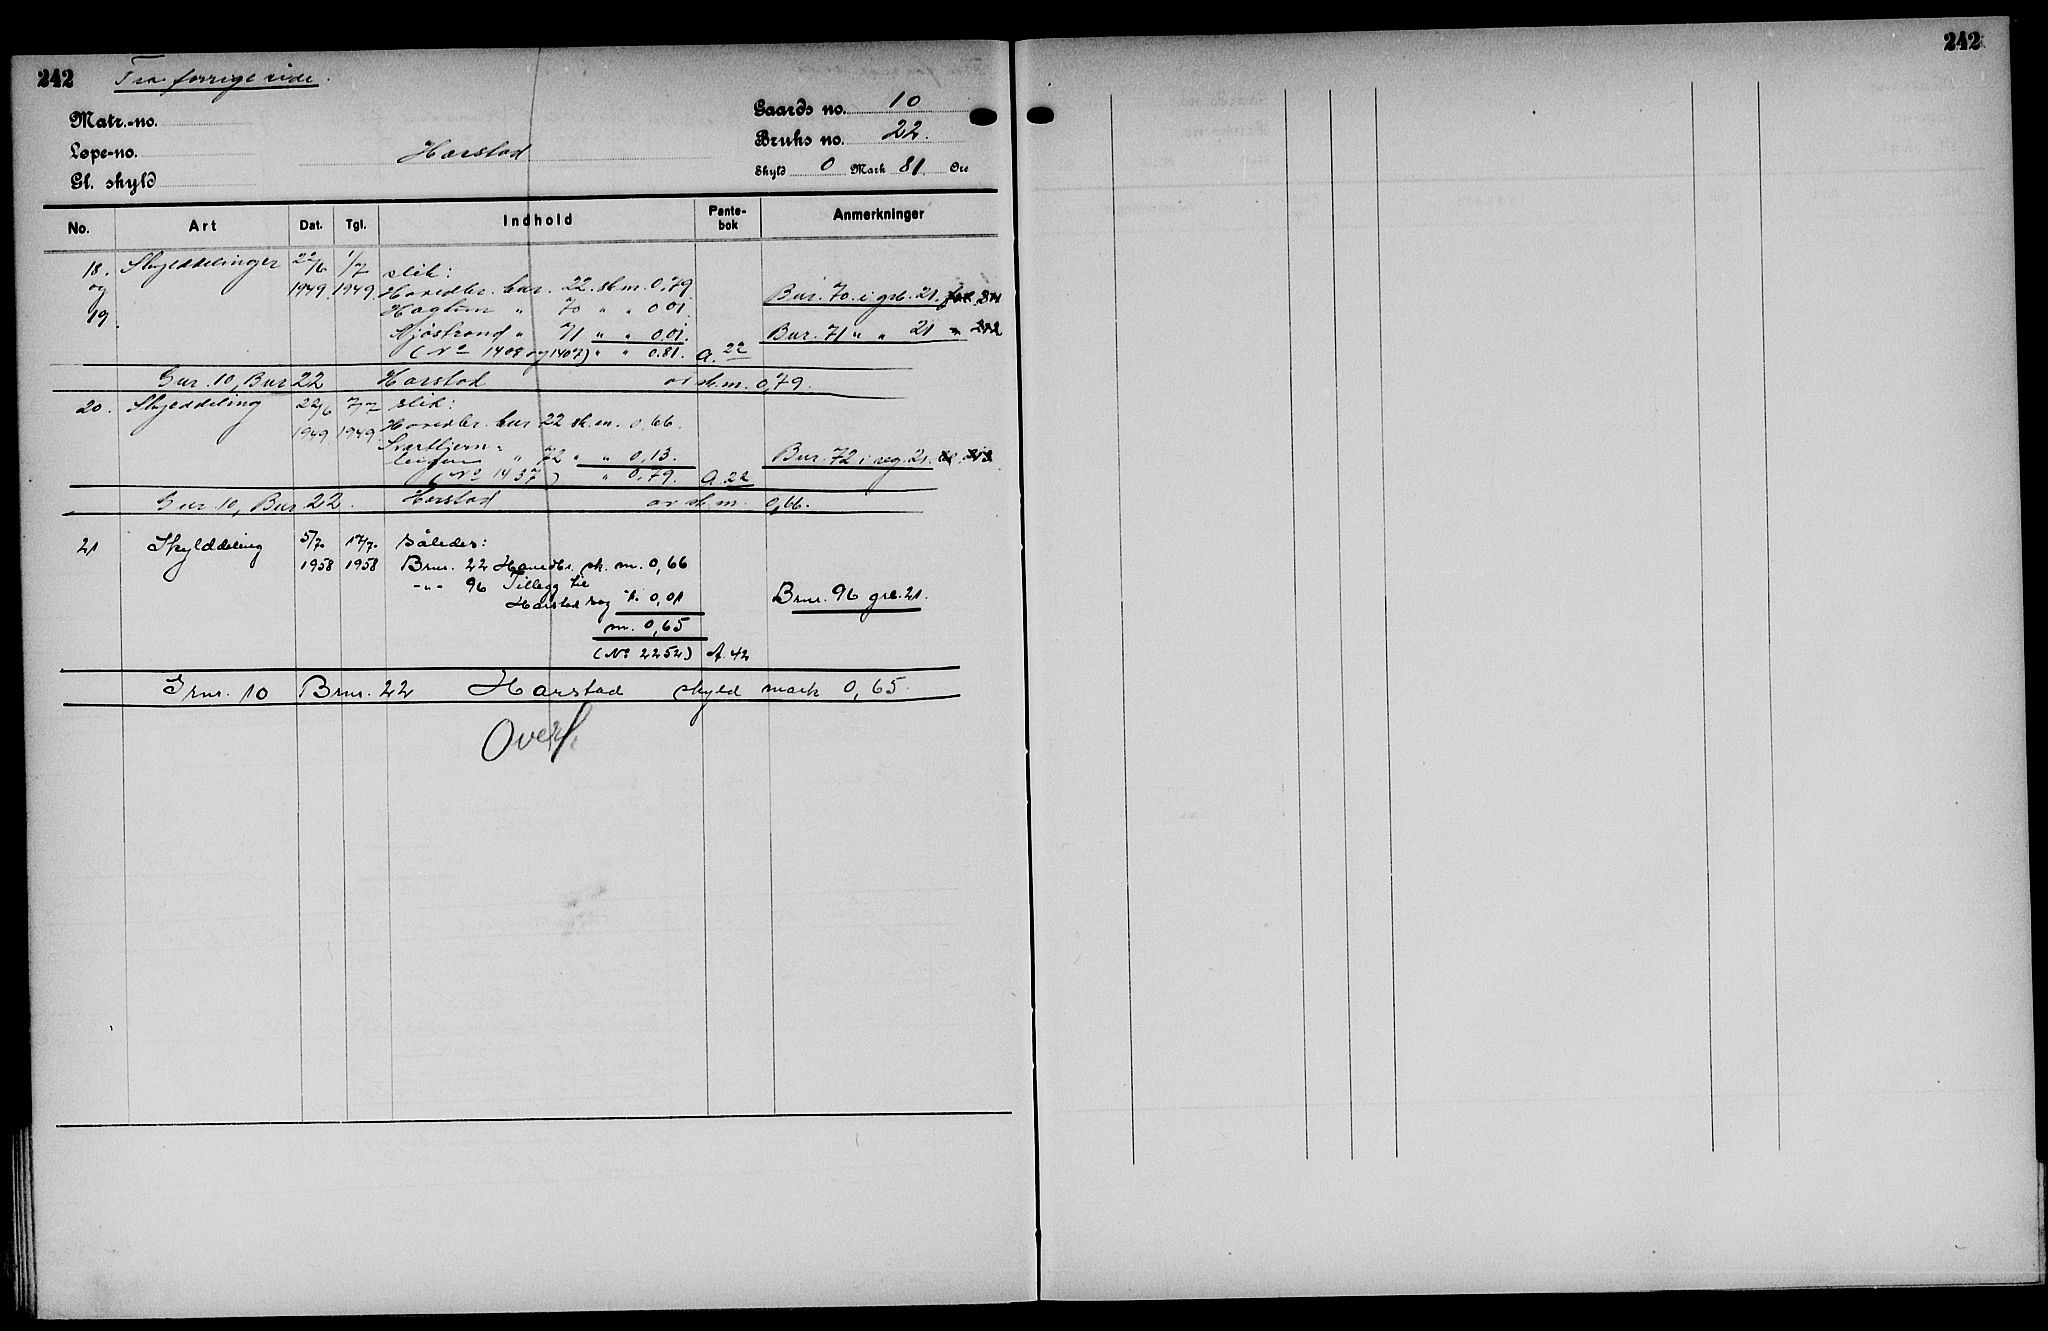 242 Fra forrige side.
242
Matr.-no.
Gaards no. 10
Løpe-no.
Harstad
Bruks no. 22.
Gl. skyld
Skyld 0 Mark 81 Øre
No. Art Dat. Tgl. Indhold Pante-bok Anmerkninger
18. Skylddelinger 22/6 1/7 slik:
og 1949 1949 Hovedbr. bnr. 22. sk.m. 0,79
Bnr. 70. i grb. 21.
19. " 70 " " 0,01.
" 71 " " 0,01.
Bnr. 71 " " 21 "
(No 1408 og 1407) " " 0.81. A. 22
Gnr. 10, Bnr 22 Harstad av sk.m. 0,79.
20. Skylddeling 22/6 7/7 slik:
1949 1949 Hovedbr. bnr 22 sk.m. 0,66.
" 72 " " 0,13.
Bnr. 72 i reg. 21.
(No 1437) " 0,79. A. 22
Gnr. 10, Bnr 22. Harstad av sk.m. 0,66.
21 Skylddeling 5/7. 17/7. således:
1958 1958 Brnr. 22 Hovedbr. sk. m. 0,66
-"- 96 Tillegg til
Harstad skog ÷ 0,01
Brnr. 96 grb. 21.
m. 0,65
(No 2252) A. 42
Grnr. 10 Brnr. 22 Harstad skyld mark 0,65.
Overf.